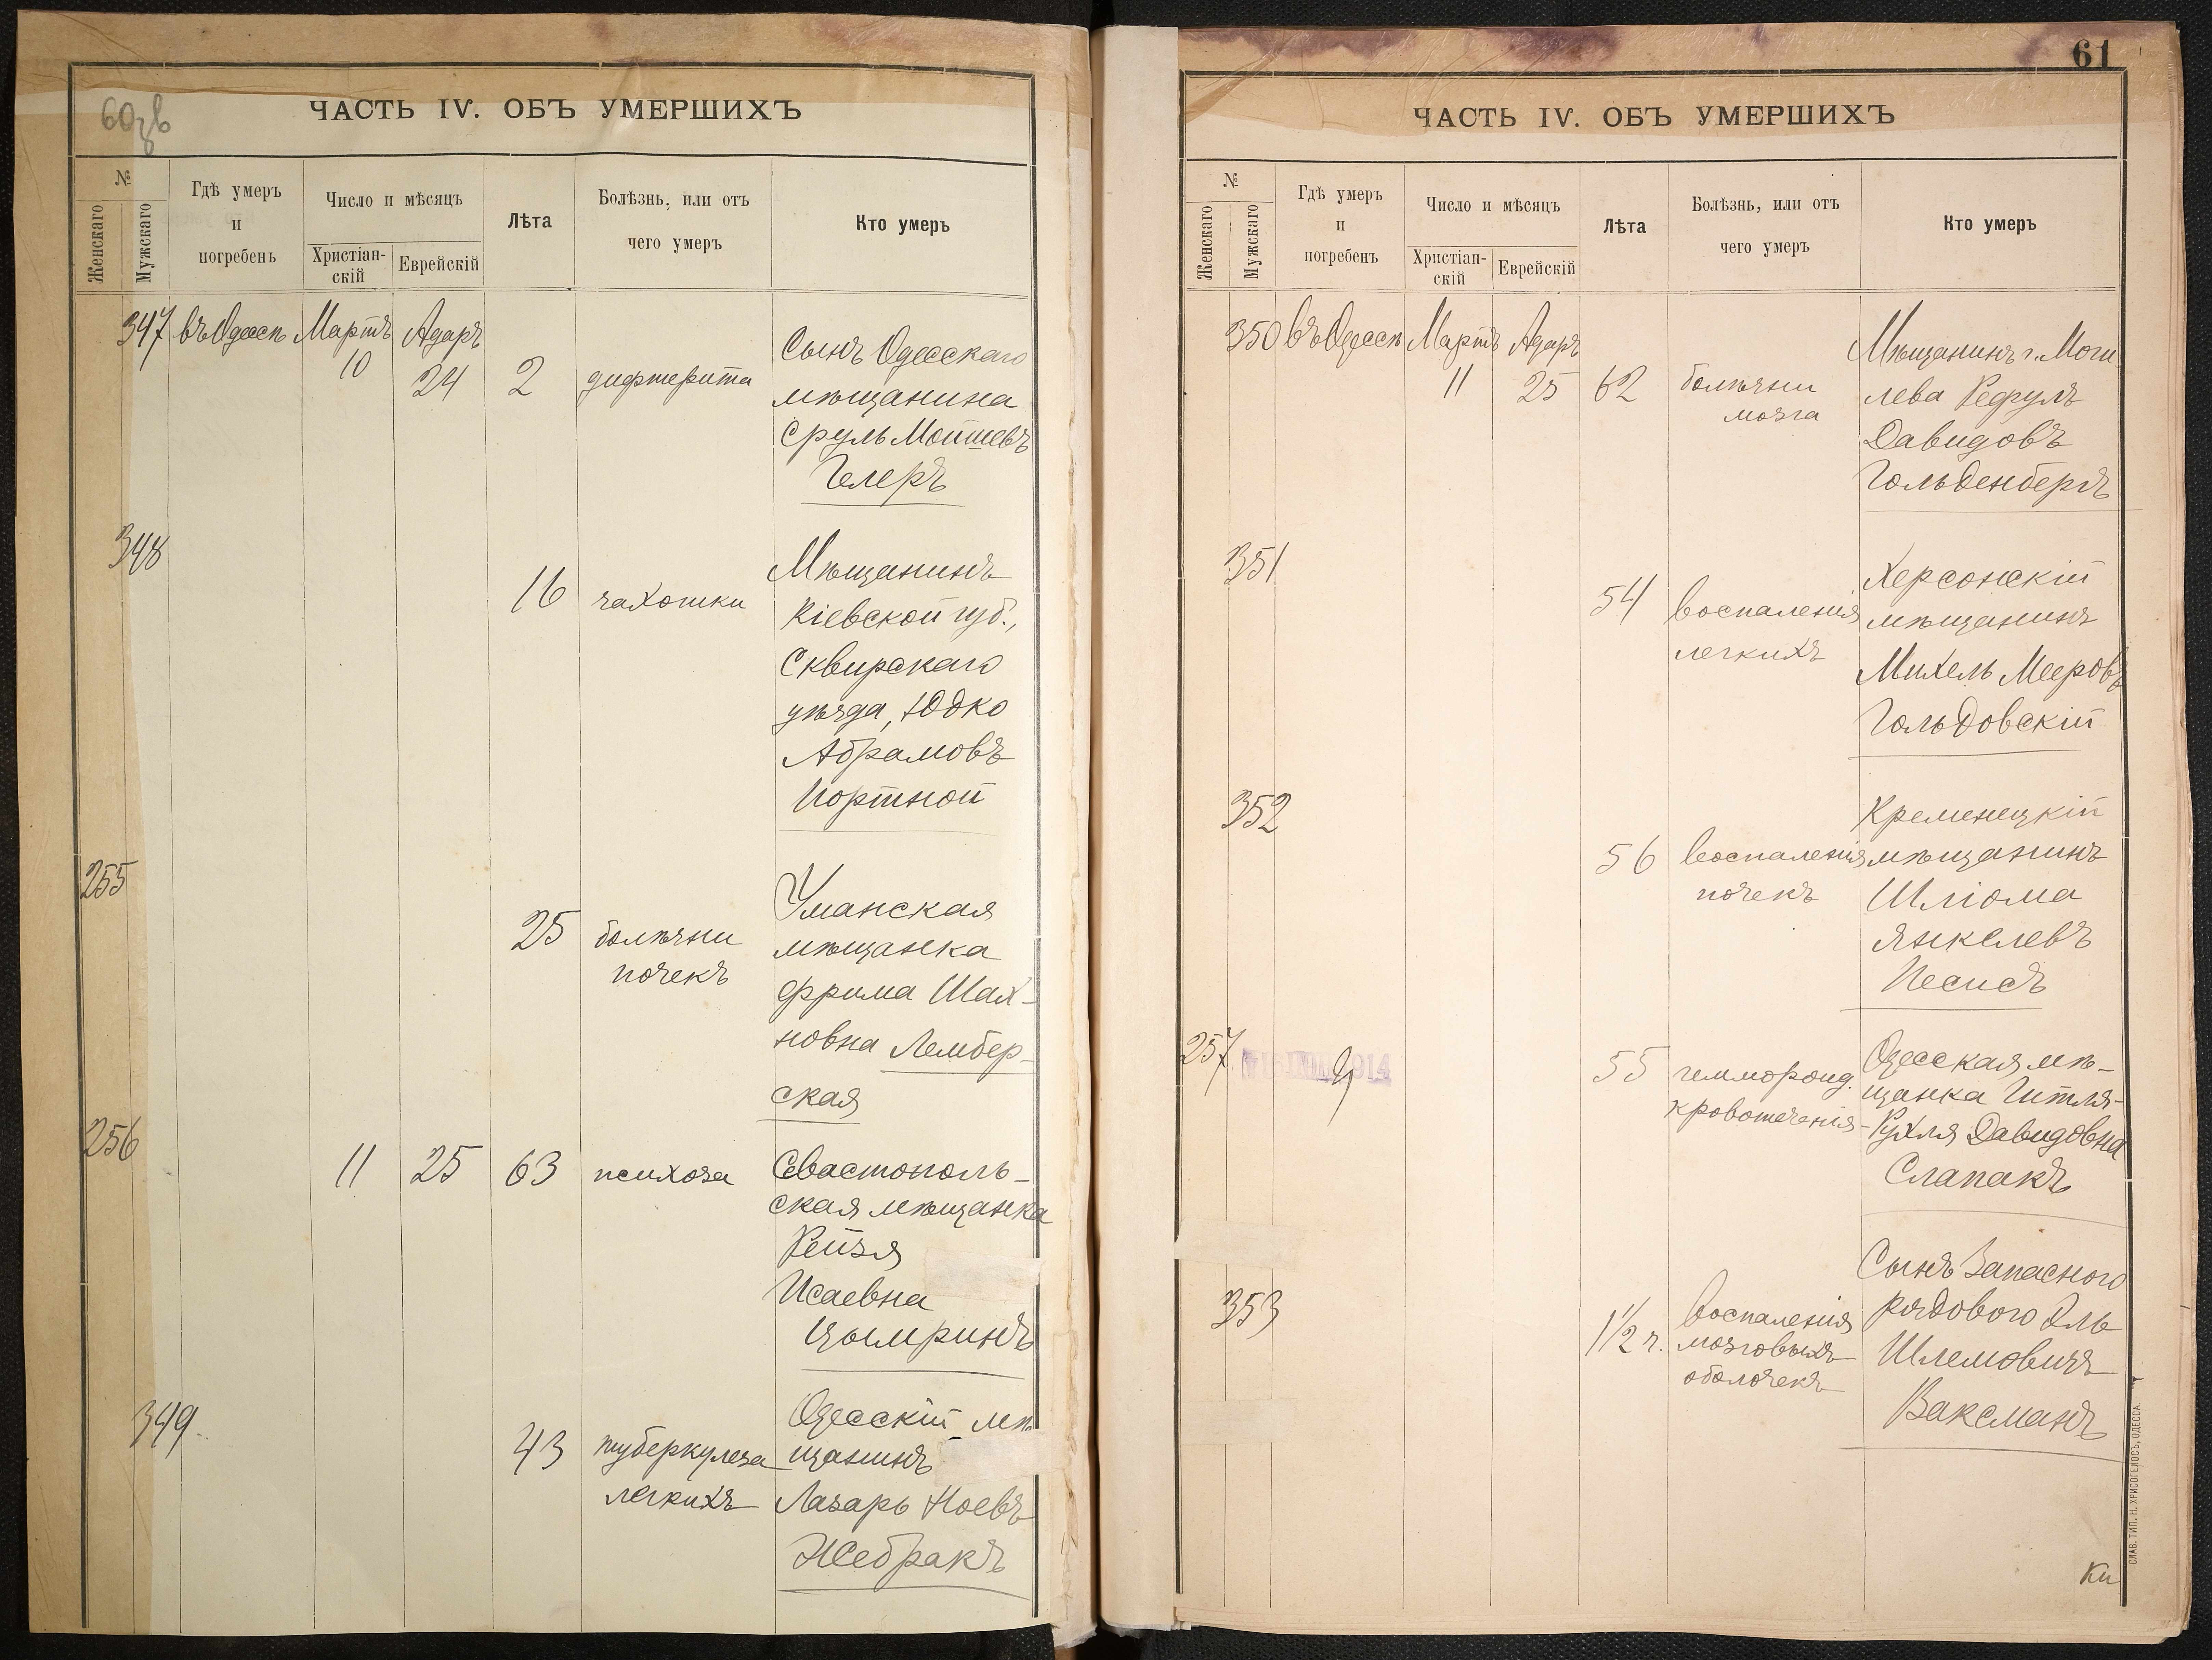 60зв
ЧАСТЬ IV. ОБЪ УМЕРШИХЪ
№
Женскаго
Мужскаго
Гдѣ умеръ
и
погребенъ
Число и мѣсяцъ
Христіан-
скій
Еврейскій
Лѣта
Болѣзнь, или отъ
чего умеръ
Кто умеръ
347 въ Одессѣ Мартъ Адаръ
10 24 2 дифтерита
Сынъ Одесскаго
мѣщанина
Сруль Мошевъ
Гелеръ
348
16 чахотки
Мѣщанинъ
Кіевской губ.,
Сквирскаго
уѣзда, Юдко
Абрамовъ
Портной
255
25 болѣзни
почекъ
Уманская
мѣщанка
Фрима Шах-
новна Лембер-
ская
256
11 25 63 психоза
Севастополь-
ская мѣщанка
Рейзя
Исаевна
Цымринъ
349
43 туберкулеза
легкихъ
Одесскій мѣ-
щанинъ
Лазарь Ноевъ
Жебракъ
61
ЧАСТЬ IV. ОБЪ УМЕРШИХЪ
№
Женскаго
Мужскаго
Гдѣ умеръ
и
погребенъ
Число и мѣсяцъ
Христіан-
скій
Еврейскій
Лѣта
Болѣзнь, или отъ
чего умеръ
Кто умеръ
350 въ Одессѣ Мартъ Адаръ
11 25 62 болѣзни
мозга
Мѣщанинъ г. Моги
лева Рефулъ
Давидовъ
Гольденбергъ
351
54 воспаленія
легкихъ
Херсонскій
мѣщанинъ
Михель Мееровъ
Гольдовскій
352
56 воспаленія
почекъ
Кременецкій
мѣщанинъ
Шліома
Янкелевъ
Песисъ
257
1914
55 геммороид.
кровотеченія
Одесская мѣ-
щанка Гитля-
Рухля Давидовна
Слапакъ
353
1 1/2 г. воспаленія
мозговыхъ
оболочекъ
Сынъ Запасного
рядового Эль
Шлемовичъ
Ваксманъ
Ки
СЛАВ. ТИП. Н. ХРИСОГЕЛОСЪ, ОДЕССА.